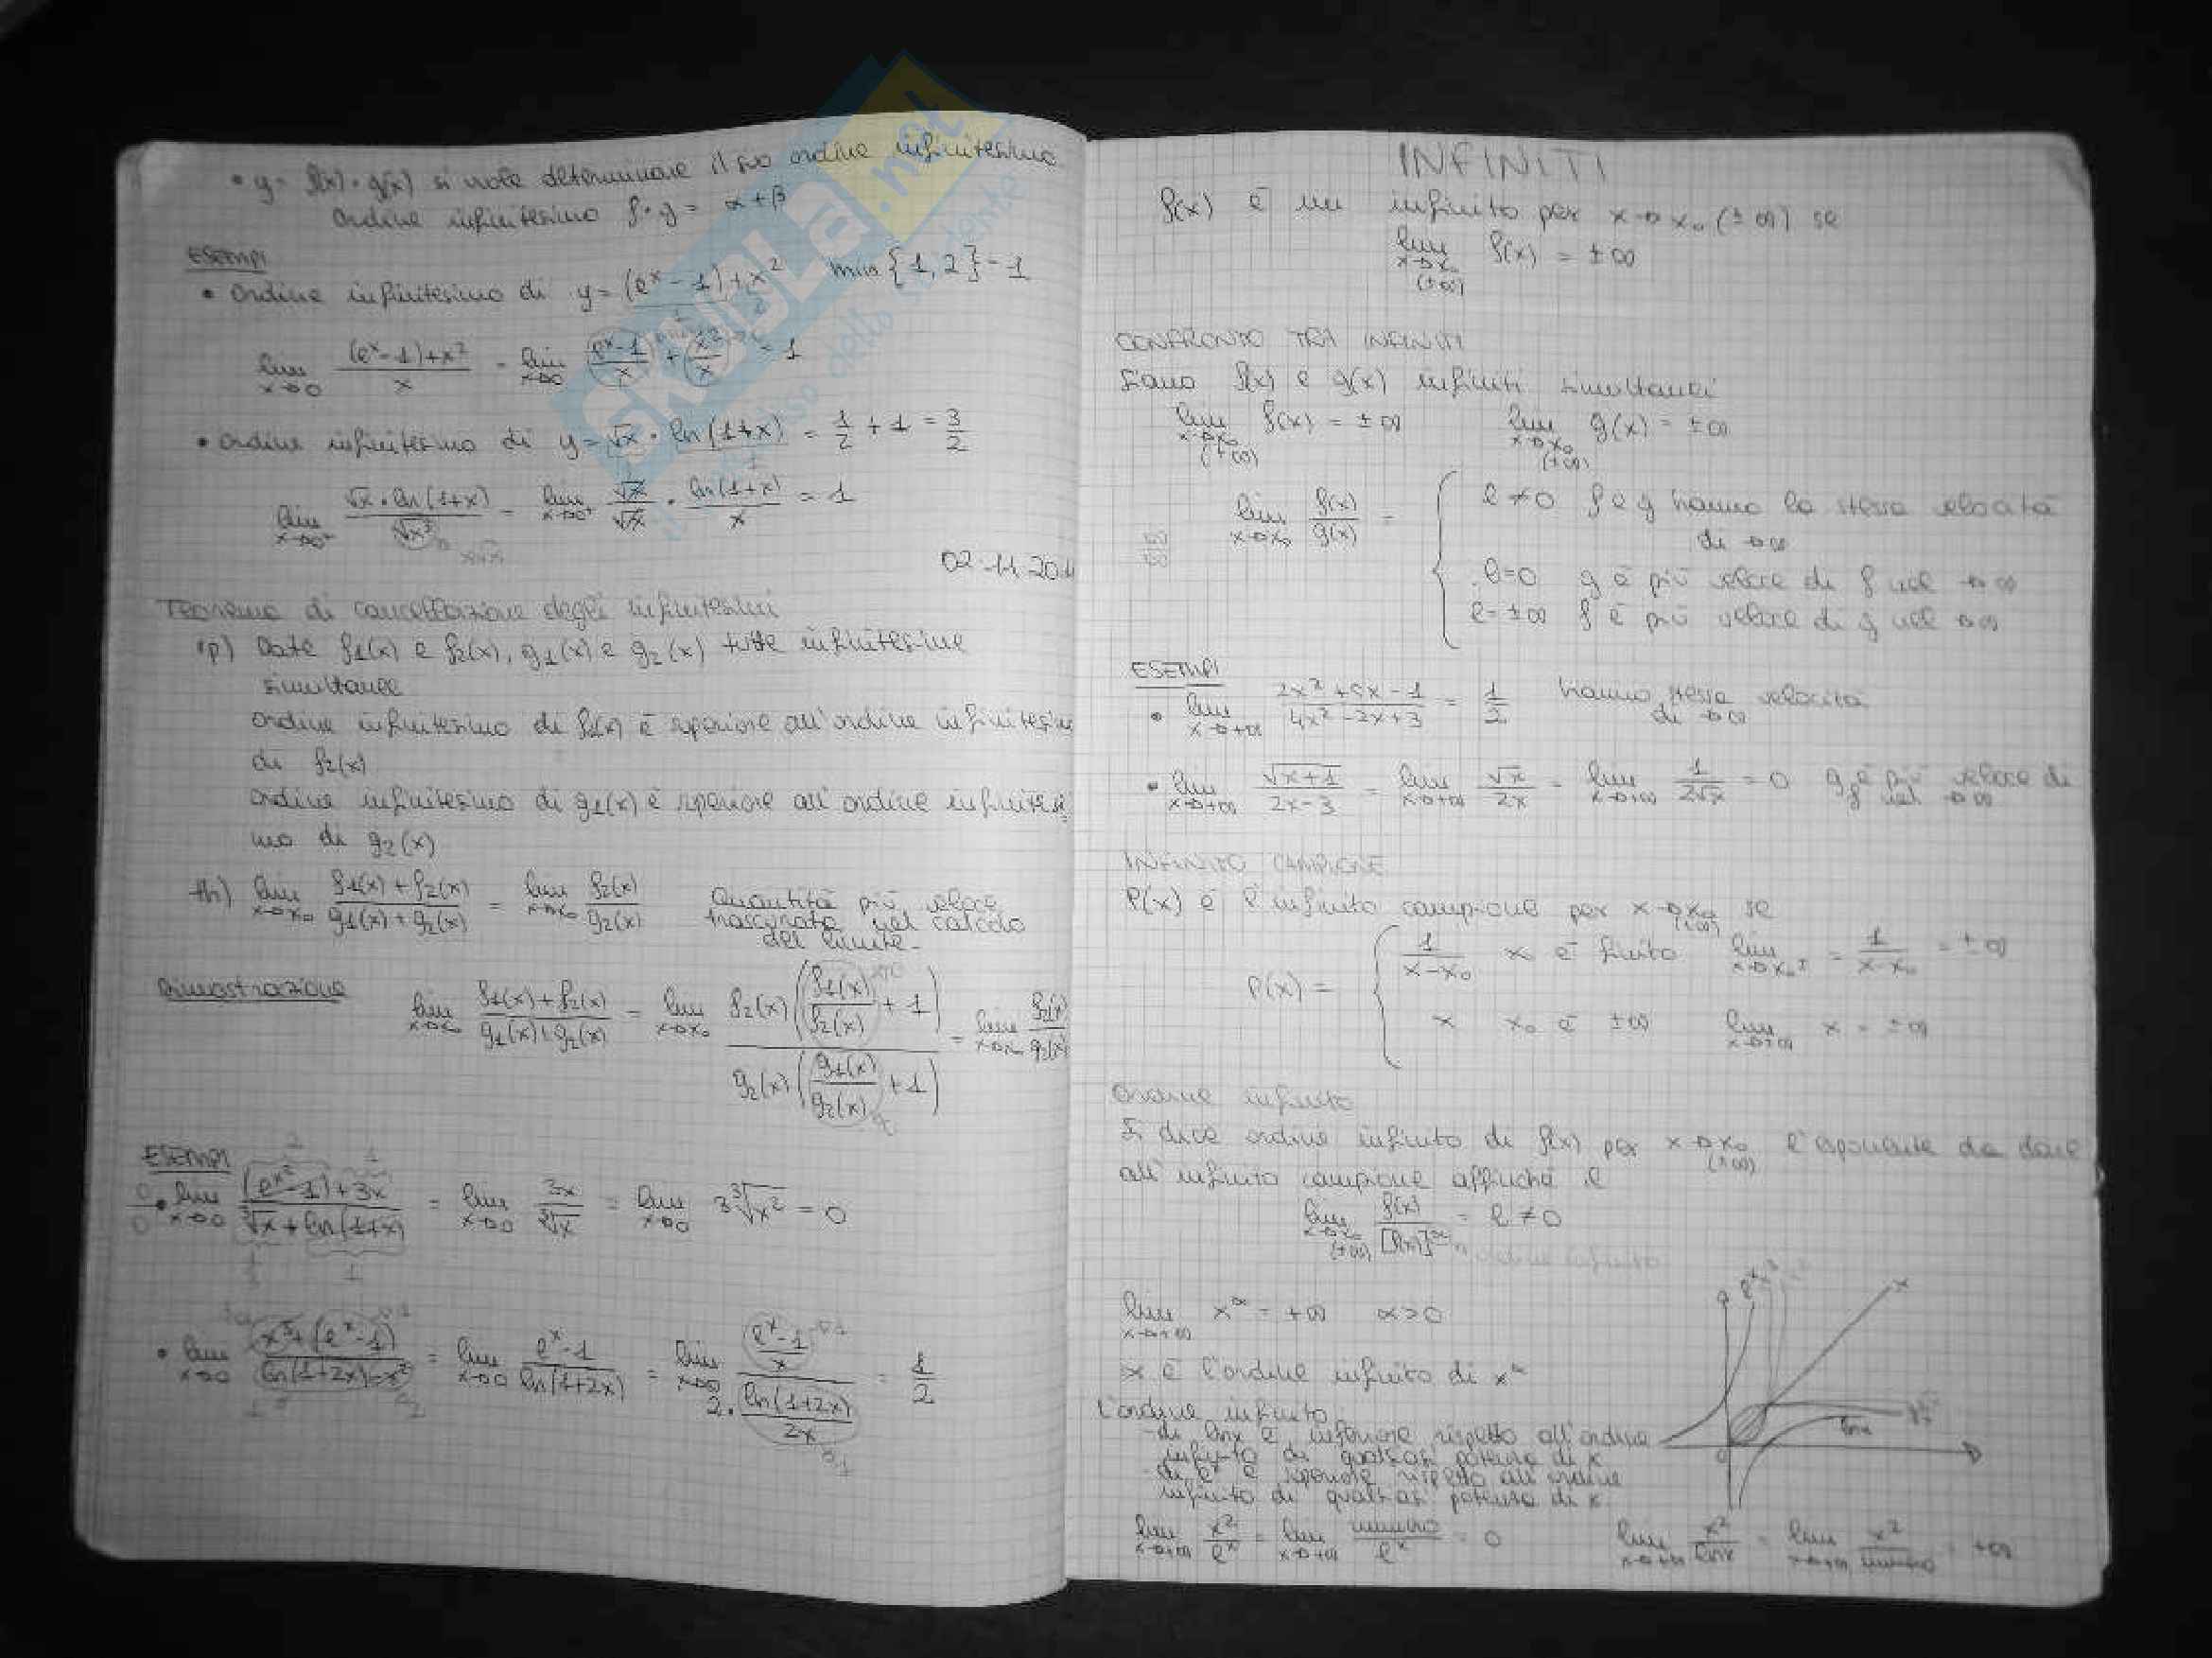 • y = f(x) · g(x) si vuole determinare il suo ordine infinitesimo
ordine infinitesimo f · g = α + β
ESEMPI
• ordine infinitesimo di y = (eˣ - 1) + x² min {1, 2} = 1
lim x→0 ((eˣ - 1) + x²)/x = lim x→0 (eˣ - 1)/x + x²/x = 1
• ordine infinitesimo di y = √x · ln(1+x) = 1/2 + 1 = 3/2
lim x→0⁺ (√x · ln(1+x))/√x³ = lim x→0⁺ √x/√x · ln(1+x)/x = 1
x√x
Teorema di cancellazione degli infinitesimi
ip) Date f₁(x) e f₂(x), g₁(x) e g₂(x) tutte infinitesime
simultanee
ordine infinitesimo di f₁(x) è superiore all'ordine infinitesimo
di f₂(x)
ordine infinitesimo di g₁(x) è superiore all'ordine infinitesi
mo di g₂(x)
th) lim x→x₀ (f₁(x) + f₂(x))/(g₁(x) + g₂(x)) = lim x→x₀ f₂(x)/g₂(x) Quantità più veloce
trascurata nel calcolo
del limite
Dimostrazione
lim x→x₀ (f₁(x) + f₂(x))/(g₁(x) + g₂(x)) = lim x→x₀ f₂(x)(f₁(x)/f₂(x) + 1)/g₂(x)(g₁(x)/g₂(x) + 1) = lim x→x₀ f₂(x)/g₂(x)
ESEMPI
0/0 • lim x→0 ((eˣ² - 1) + 3x)/(∛x + ln(1+x)) = lim x→0 3x/∛x = lim x→0 3∛x² = 0
• lim x→0 (x³ + (eˣ - 1))/(ln(1+2x) - x²) = lim x→0 (eˣ - 1)/ln(1+2x) = lim x→0 ((eˣ - 1)/x)/(2 · ln(1+2x)/2x) = 1/2
INFINITI
f(x) è un infinito per x→x₀ (±∞) se
lim x→x₀ (±∞) f(x) = ±∞
CONFRONTO TRA INFINITI
Siano f(x) e g(x) infiniti simultanei
lim x→x₀ (±∞) f(x) = ±∞ lim x→x₀ (±∞) g(x) = ±∞
lim x→x₀ f(x)/g(x) = { l ≠ 0 f e g hanno la stessa velocità
di →∞
l = 0 g è più veloce di f nel →∞
l = ±∞ f è più veloce di g nel →∞
ESEMPI
• lim x→+∞ (2x² + 5x - 1)/(4x² - 2x + 3) = 1/2 hanno stessa velocità
di →∞
• lim x→+∞ √(x+1)/(2x - 3) = lim x→+∞ √x/2x = lim x→+∞ 1/2√x = 0 g è più veloce di
f nel →∞
INFINITO CAMPIONE
P(x) è l'infinito campione per x→x₀ (±∞) se
P(x) = { 1/(x - x₀) x₀ è finito lim x→x₀± = 1/(x - x₀) = ±∞
x x₀ è ±∞ lim x→±∞ x = ±∞
Ordine infinito
Si dice ordine infinito di f(x) per x→x₀ (±∞) l'esponente da dare
all'infinito campione affinché il
lim x→x₀ (±∞) f(x)/[P(x)]^α = l ≠ 0
ordine infinito
lim x→+∞ x^α = +∞ α > 0
α è l'ordine infinito di x^α
L'ordine infinito
- di lnx è inferiore rispetto all'ordine
infinito di qualsiasi potenza di x
- di eˣ è superiore rispetto all'ordine
infinito di qualsiasi potenza di x
eˣ
x
lnx
0
lim x→+∞ x²/eˣ = lim x→+∞ numero/eˣ = 0 lim x→+∞ x²/lnx = lim x→+∞ x²/numero = +∞
SKUOLA.net